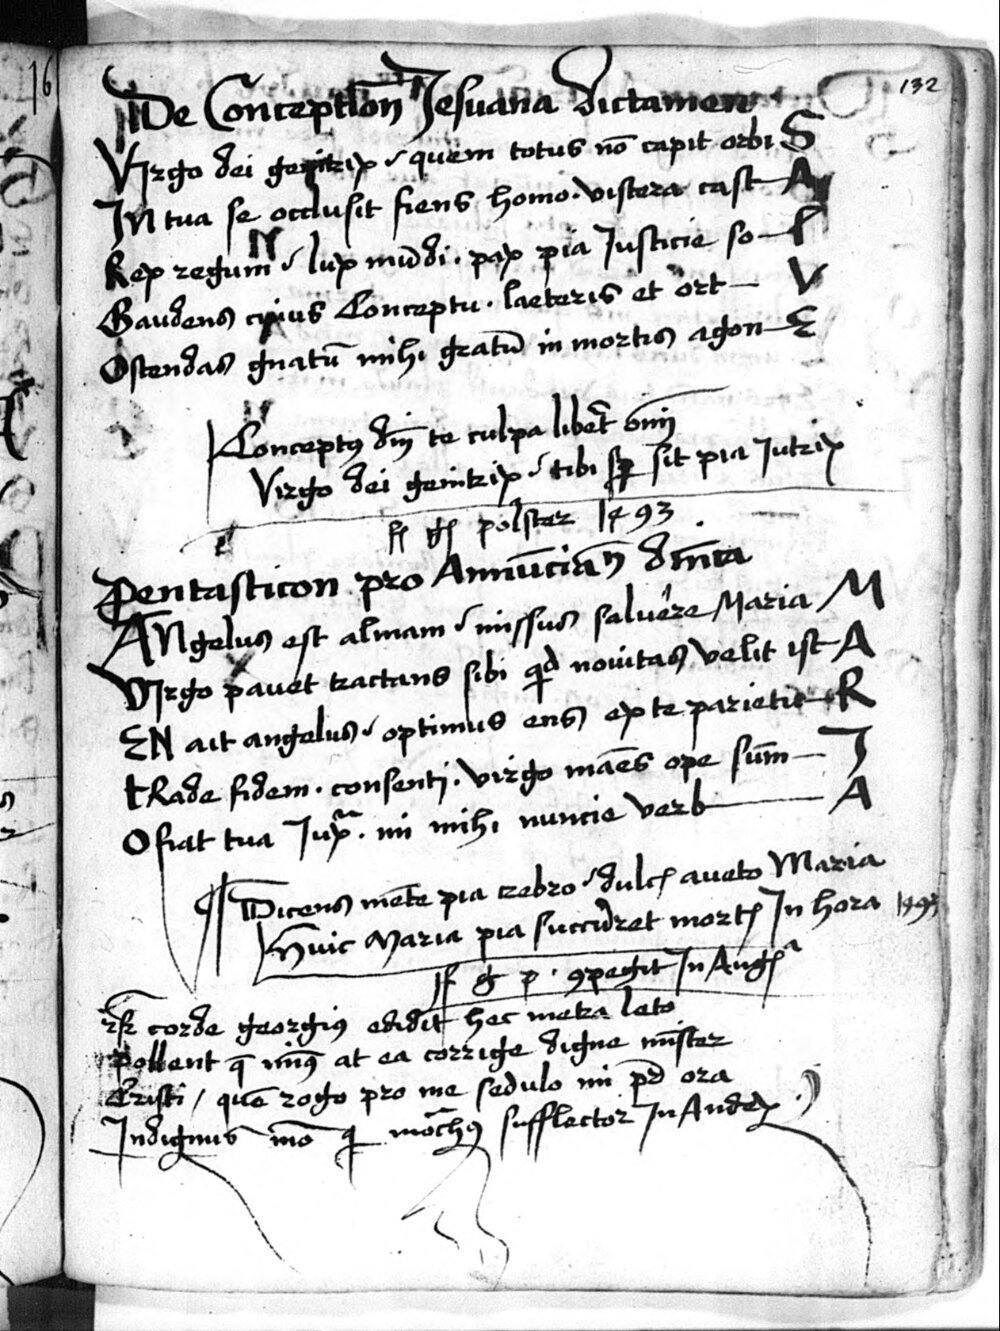 132
De Conceptiõn Jesuana dictamen
VIrgo dei genitrix quem totus nõ capit orbi S
IN tua se occlusit fiens homo. viscera cast A
Rex regum lux mũdi. pax pia Justicie so L
Gaudens cuius Conceptu. laeteris et ort V
Ostendas gnatũ mihi gratũ in mortis agon E
Conceptus dñi te culpa
Virgo dei genitrix tibi sit pia Jutrix
polster 1493
Pentasticon pro Annũciãn dñica
ANgelus est almam missus salvere Maria M
VIrgo pavet tractans sibi qd novitas velit ist A
EN ait angelus optimus ens ex te parietu R
tRade fidem. consenti. virgo mañes ope sum̃ I
O fiat tua. mi mihi nuncie verb A
Dicens mẽte pia crebro dulc aveto Maria
Huic Maria pia succurret mort In hora 1493
g p. In Aug
corde georgius edidit hec metra leto
pollent at ea corrige digne mister
Cristi / quẽ rogo pro me sedulo mi ora
Indignus mõ q sufflector In Andex